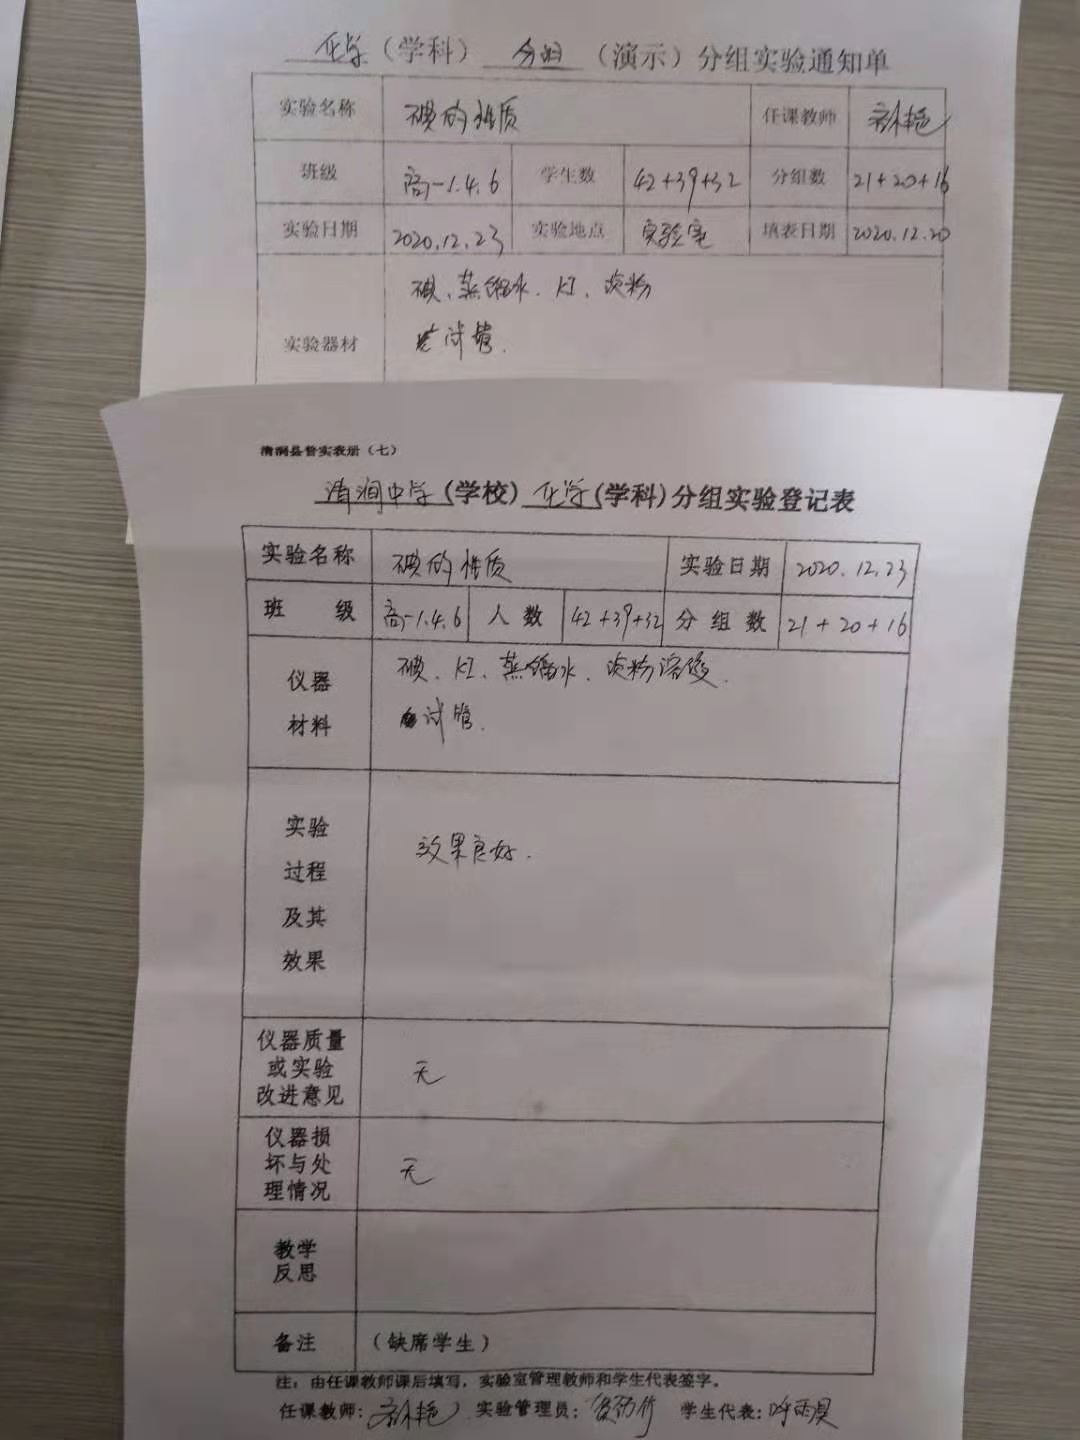 化学（学科） 分组 （演示）分组实验通知单
实验名称 碘的性质 任课教师
班级 高一1.4.6 学生数 42+39+32 分组数 21+20+16
实验日期 2020.12.23 实验地点 实验室 填表日期 2020.12.20
碘、蒸馏水、KI、淀粉
实验器材 试管.
清涧县普实表册（七）
清涧中学(学校) 化学(学科)分组实验登记表
实验名称 碘的性质 实验日期 2020.12.23
班 级 高一1.4.6 人数 42+39+32 分组数 21+20+16
仪器 碘、KI、蒸馏水、淀粉溶液.
材料 试管.
实验
过程 效果良好.
及其
效果
仪器质量
或实验 无
改进意见
仪器损
坏与处 无
理情况
教学
反思
备注 （缺席学生）
注：由任课教师课后填写，实验室管理教师和学生代表签字。
任课教师: 实验管理员: 学生代表: